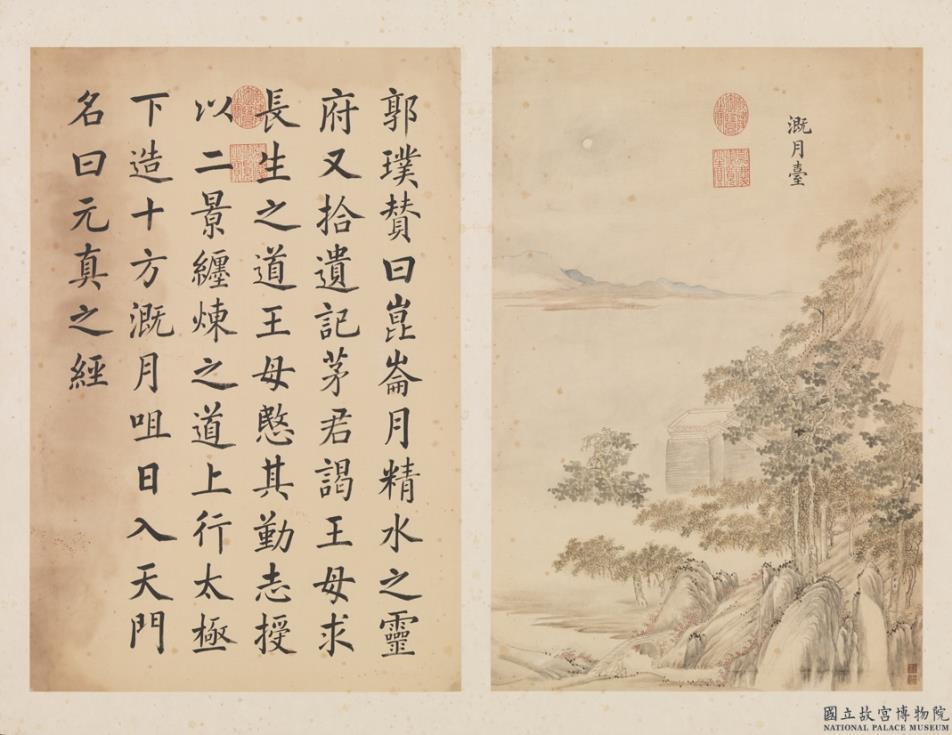 溉月臺
郭璞賛曰崑崙月精水之靈
府又拾遺記茅君謁王母求
長生之道王母愍其勤志授
以二景纏煉之道上行太極
下造十方溉月咀日入天門
名曰元真之經
國立故宮博物院
NATIONAL PALACE MUSEUM